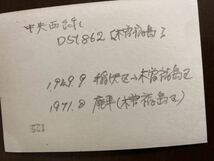 中央西線
D51862 [木曽福島]
1949.9 稲沢区→木曽福島区
1971.8 廃車(木曽福島区)